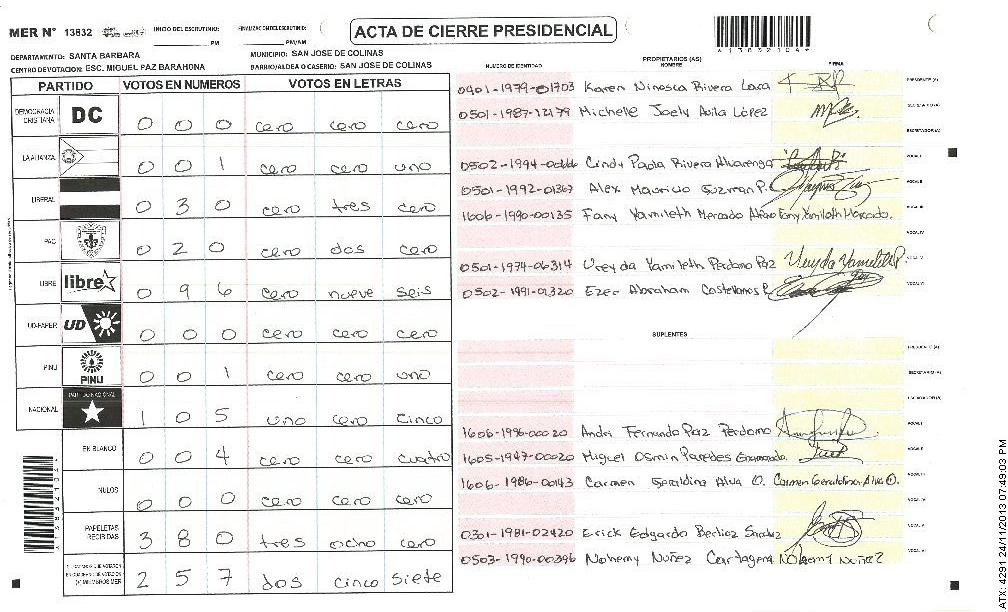 MER N° 13832
INICIO DEL ESCRUTINIO: PM
FINALIZACION DEL ESCRUTINIO: PM/AM
ACTA DE CIERRE PRESIDENCIAL
DEPARTAMENTO: SANTA BARBARA
MUNICIPIO: SAN JOSE DE COLINAS
CENTRO DE VOTACION: ESC. MIGUEL PAZ BARAHONA
BARRIO/ALDEA O CASERIO: SAN JOSE DE COLINAS
PARTIDO VOTOS EN NUMEROS VOTOS EN LETRAS
DEMOCRACIA CRISTIANA DC 0 0 0 cero cero cero
LA ALIANZA 0 0 1 cero cero uno
LIBERAL 0 3 0 cero tres cero
PAC 0 2 0 cero dos cero
LIBRE libre 0 9 6 cero nueve seis
UD-FAPER UD 0 0 0 cero cero cero
PINU PINU 0 0 1 cero cero uno
NACIONAL PARTIDO NACIONAL 1 0 5 uno cero cinco
EN BLANCO 0 0 4 cero cero cuatro
NULOS 0 0 0 cero cero cero
PAPELETAS RECIBIDAS 3 8 0 tres ocho cero
2 5 7 dos cinco siete
NUMERO DE IDENTIDAD
PROPIETARIOS (AS)
NOMBRE
FIRMA
0401-1979-01703 Karen Ninosca Rivera Lara PRESIDENTE (A)
0501-1987-12179 Michelle Joely Avila López SECRETARIO (A)
ESCRUTADOR (A)
0502-1994- Cindy Paola Rivera Alvarenga VOCAL I
0501-1992-01367 Alex Mauricio Guzman P. VOCAL II
1606-1990-00135 Fany Yamileth Mercado Alfaro Fany Yamileth Mercado. VOCAL III
VOCAL IV
0501-1974-06314 Ureyda Yamileth Perdomo Paz Ureyda Yamileth P. VOCAL V
0502-1991-01320 Ezer Abraham Castellanos P. VOCAL VI
SUPLENTES
PRESIDENTE (A)
SECRETARIO (A)
ESCRUTADOR (A)
1606-1996-00020 Andri Fernando Paz Perdomo VOCAL I
1605-1947-00020 Miguel Osmin Paredes VOCAL II
1606-1986-00143 Carmen Geraldina Alva O. Carmen Geraldina Alva O. VOCAL III
VOCAL IV
0301-1981-02420 Erick Edgardo Berlioz VOCAL V
0503-1990-00396 Nohemy Nuñez Cartagena Nohemy Nuñez VOCAL VI
ATX: 4291 24/11/2013 07:49:03 PM